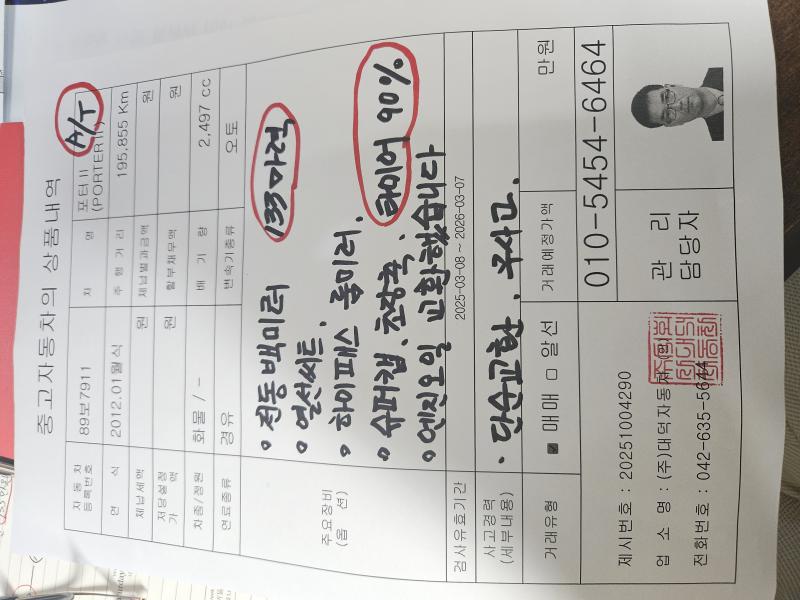 중고자동차의 상품내역
자동차등록번호 89보7911 차 명 포터II (PORTER II) A/T
연 식 2012.01월식 주행거리 195,855 Km
체납세액 원 체납범과금액 원
저당설정가액 원 할부채무액 원
차종/정원 화물 / - 배 기 량 2,497 cc
연료종류 경유 변속기종류 오토
주요장비 (옵 션)
• 전동백미러 133마력
• 열선씨트.
• 하이패스 룸미러.
• 슈퍼캡. 초장축. 타이어 90%
• 엔진오일 교환했습니다
검사유효기간 2025-03-08 ~ 2026-03-07
사고경력 (세부내용) • 단순교환. 무사고.
거래유형 ☑ 매매 □ 알선 거래예정가액 만원
010-5454-6464
제시번호 : 20251004290
업 소 명 : (주)대덕자동차 (인)
전화번호 : 042-635-5644
관 리
담당자